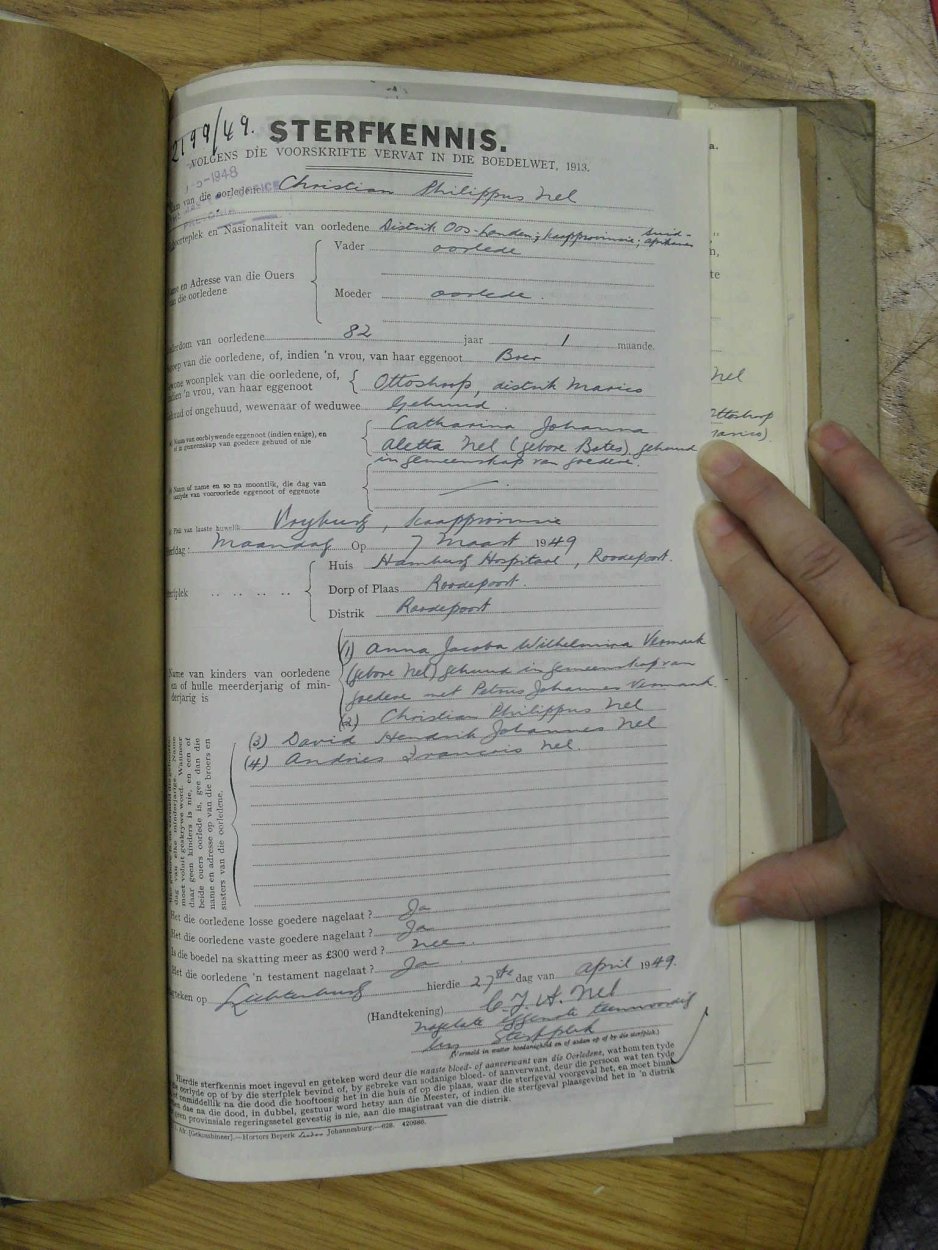 2199/49.
STERFKENNIS.
VOLGENS DIE VOORSKRIFTE VERVAT IN DIE BOEDELWET, 1913.
-5-1948
van die oorledene Christian Philippus Nel
en Nasionaliteit van oorledene Distrik Oos-Londen; Kaapprovinsie; Suid-
Afrikaner
en Adresse van die Ouers
van die oorledene
Vader oorlede
Moeder oorlede.
van oorledene 82 jaar 1 maande.
van die oorledene, of, indien 'n vrou, van haar eggenoot Boer
woonplek van die oorledene, of,
indien 'n vrou, van haar eggenoot
Ottoshoop, distrik Marico
of ongehuud, wewenaar of weduwee Gehuud.
Naam van oorblywende eggenoot (indien enige), en
of in gemeenskap van goedere gehuud of nie
Catharina Johanna
Aletta Nel (gebore Bates) gehuud
in gemeenskap van goedere.
Naam of name en so na moontlik, die dag van
van vooroorlede eggenoot of eggenote
Plek van laaste huwelik Vryburg, Kaapprovinsie
Maandag Op 7 Maart 1949
Huis Hamburg Hospitaal, Roodepoort.
Dorp of Plaas Roodepoort.
Distrik Roodepoort
Name van kinders van oorledene
en of hulle meerderjarig of min-
derjarig is
(1) Anna Jacoba Wilhelmina Vermaak
(gebore Nel) gehuud in gemeenskap van
goedere met Petrus Johannes Vermaak.
(2) Christian Philippus Nel
(3) David Hendrik Johannes Nel
(4) Andries Francois Nel.
dag van elke minderjarige
moet voluit geskrywe word. Wanneer
daar geen kinders is nie, en een of
beide ouers oorlede is, gee dan die
name en adresse op van die broers en
susters van die oorledene.
Het die oorledene losse goedere nagelaat? Ja
Het die oorledene vaste goedere nagelaat? Ja
Is die boedel na skatting meer as £300 werd? Nee.
Het die oorledene 'n testament nagelaat? Ja
Geteken op Lichtenburg hierdie 27ste dag van April 1949.
(Handtekening) C. J. A. Nel
nagelate eggenote teenwoordig
by Sterfplek
(Vermeld in watter hoedanigheid en of aldan op of by die sterfplek.)
Hierdie sterfkennis moet ingevul en geteken word deur die naaste bloed- of aanverwant van die Oorledene, wat hom ten tyde
oorlyde op of by die sterfplek bevind of, by gebreke van sodanige bloed- of aanverwant, deur die persoon wat ten tyde
onmiddellik na die dood die hooftoesig het in die huis of op die plaas, waar die sterfgeval voorgeval het, en moet binne
dae na die dood, in dubbel, gestuur word hetsy aan die Meester, of indien die sterfgeval plaasgevind het in 'n distrik
geen provinsiale regeringssetel gevestig is nie, aan die magistraat van die distrik.
Hortors Beperk Johannesburg.—628. 420986.
a.
n,
te
Nel
Ottoshoop
Marico)